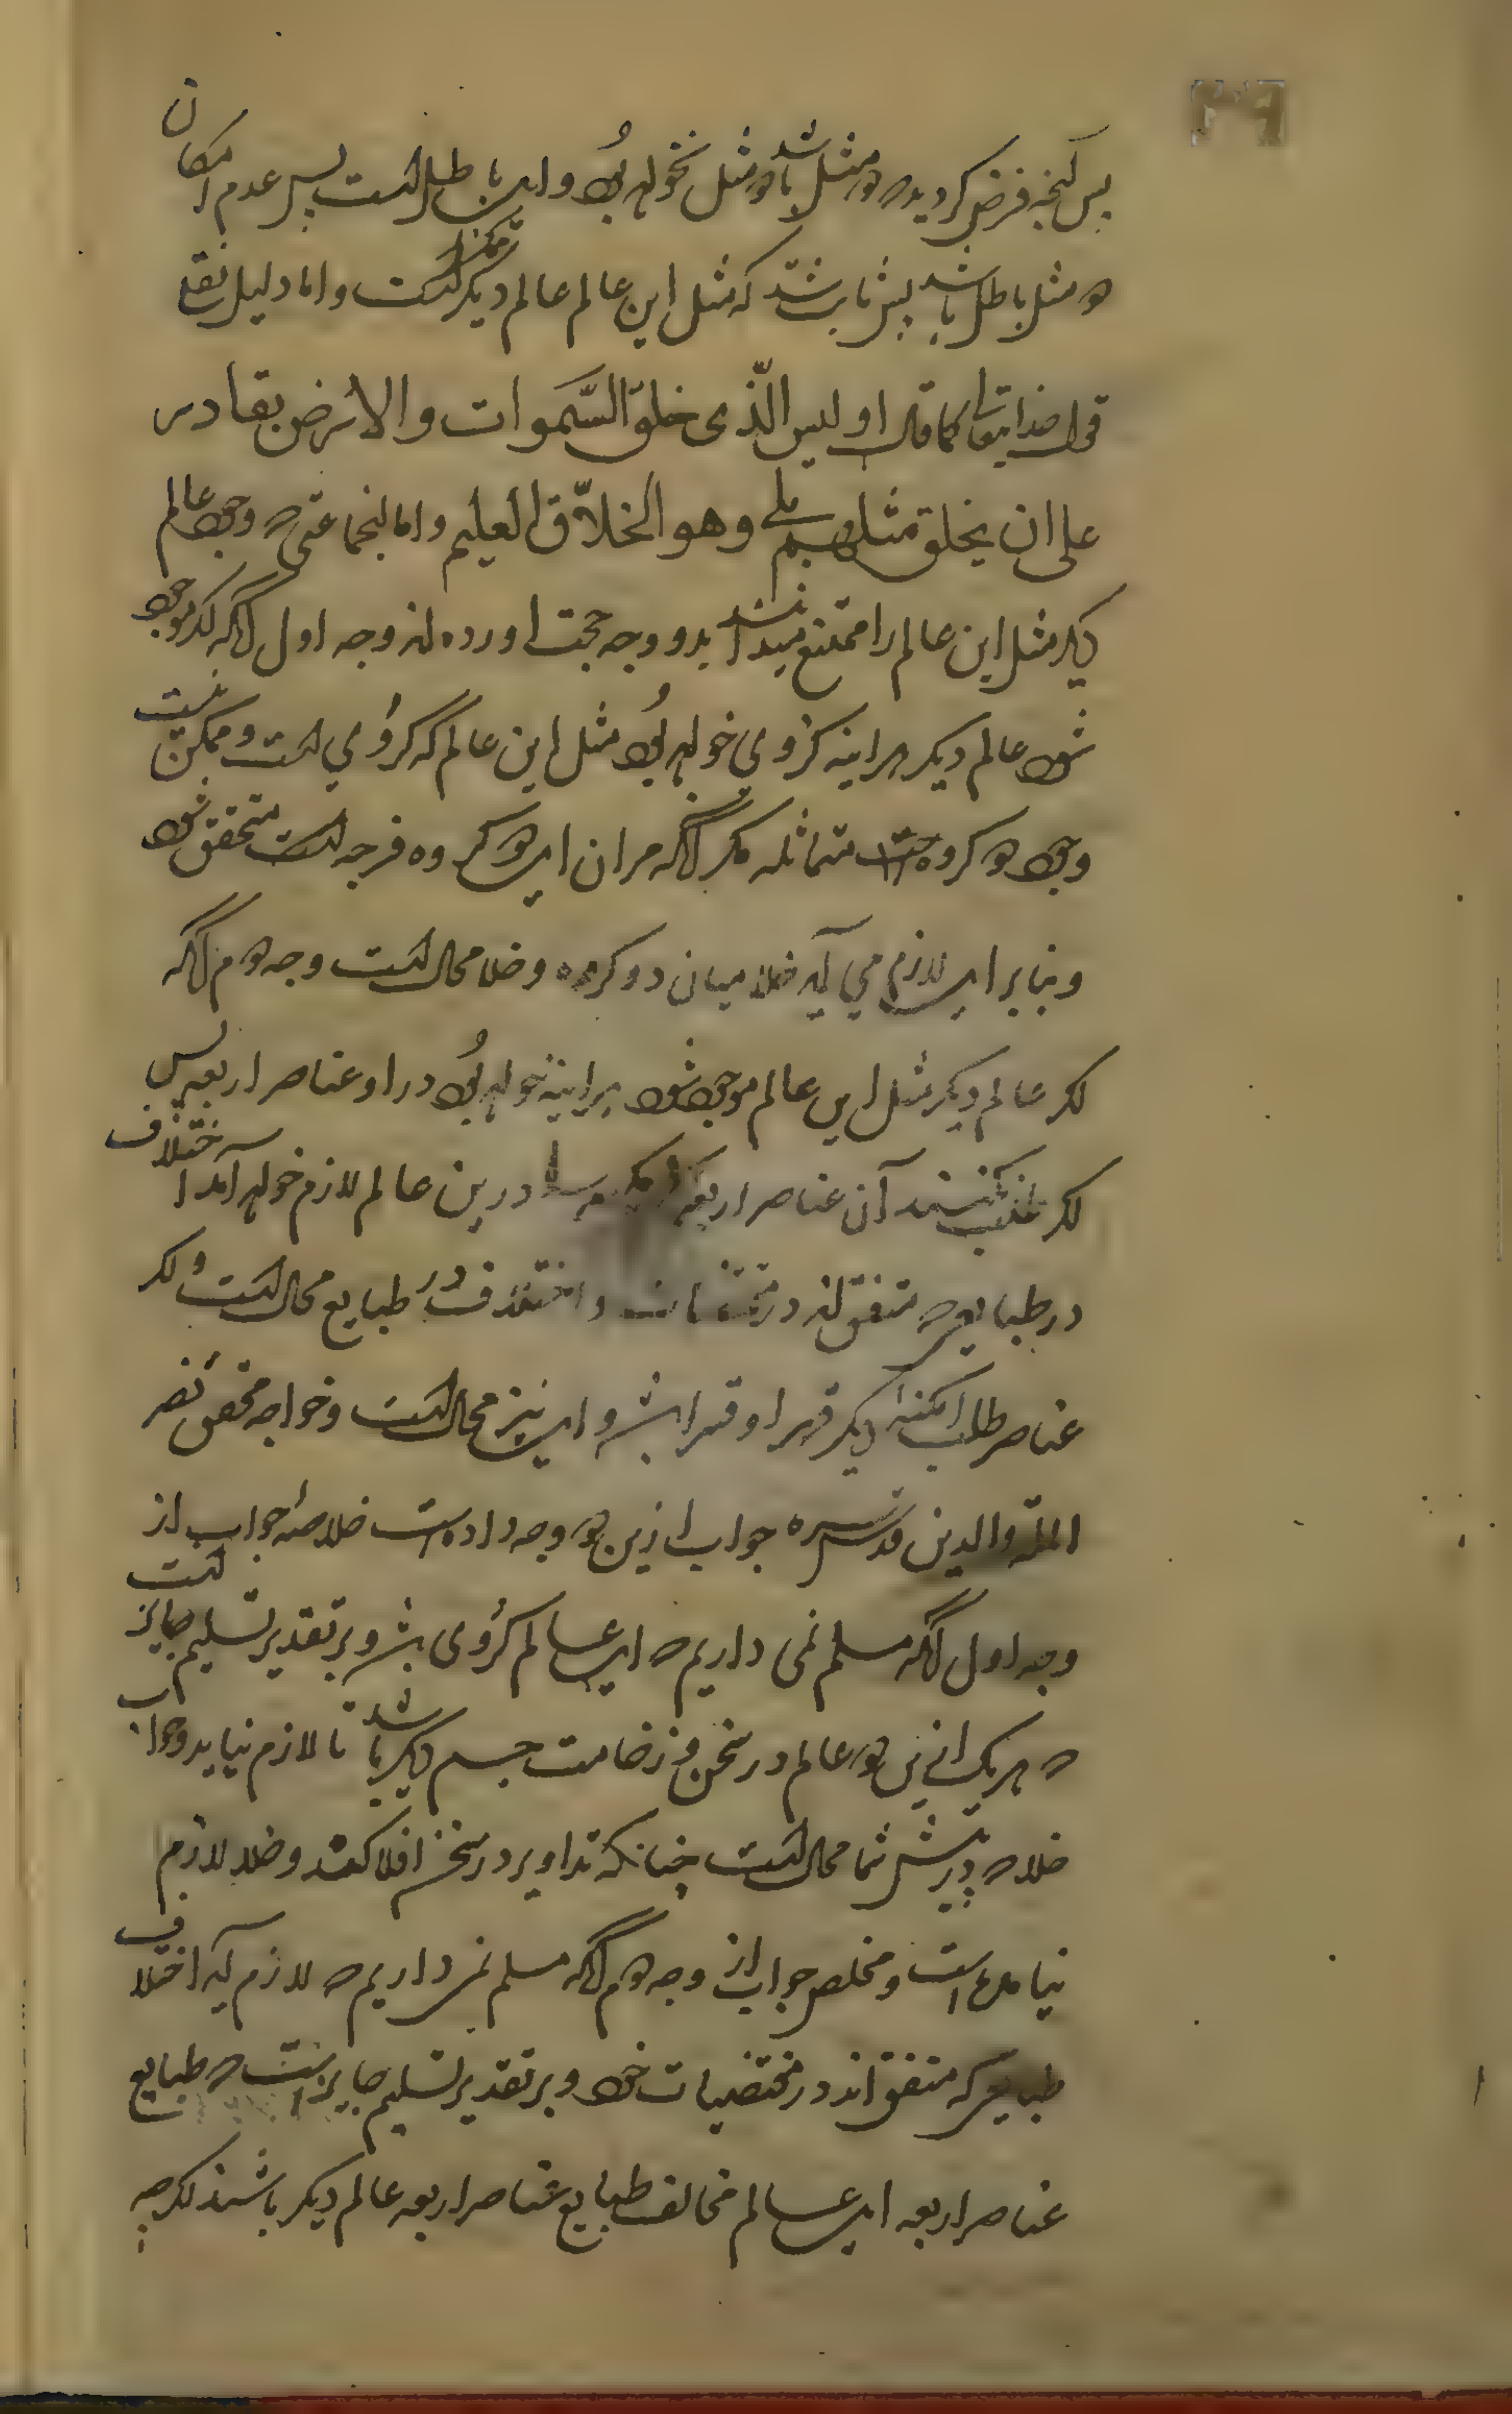 پس آنچه فرض کردید که دو مثل باشد دو مثل نخواهد بود و این باطل است پس عدم امکان
دو مثل باطل باشد پس ثابت شد که مثل این عالم عالم دیگر ممکن است و اما دلیل نقلی
قول خدایتعالی کما قال او لیس الّذی خلق السّموات والارض بقادر
علی ان یخلق مثلهم بلی وهو الخلّاق العلیم و اما آنجماعتی که وجود عالم
دیگر مثل این عالم را ممتنع میدانند بدو وجه حجت آورده‌اند وجه اول آنکه اگر موجود
شود عالم دیگر هر اینه کروی خواهد بود مثل این عالم که کروی است و ممکن نیست
وجود دو کره متماثله مگر آنکه میان این دو کره فرجه است متحقق شود
و بنابراین لازم می آید خلا میان دو کره و خلا محال است وجه دوم آنکه
اگر عالم دیگر مثل این عالم موجود شود هر اینه خواهد بود در او عناصر اربعه پس
اگر طلب نکنند آن عناصر اربعه درین عالم لازم خواهد آمد اختلاف
در طبایعی که متفق‌اند در مقتضیات و اختلاف در طبایع محال است و اگر
عناصر طلب امکنه دیگر قهرا و قسرا باشد و این نیز محال است و خواجه محقق نصیر
الملّه والدین قدس سره جواب ازین دو وجه داده است خلاصه جواب از
وجه اول آنکه مسلم نمی داریم که این عالم کروی باشد و بر تقدیر تسلیم جایز است
که هر یک ازین دو عالم در ثخن و ضخامت جسم دیگر باشد تا لازم نیاید وجود
خلا که در پیش شما محال است چنانکه تداویر در ثخن افلاکند و خلا لازم
نیامده است و مخلص جواب از وجه دوم آنکه مسلم نمی داریم که لازم آید اختلاف
طبایعی که متفق اند در مقتضیات خود و بر تقدیر تسلیم جایز است که طبایع
عناصر اربعه این عالم مخالف طبایع عناصر اربعه عالم دیگر باشند اگرچه